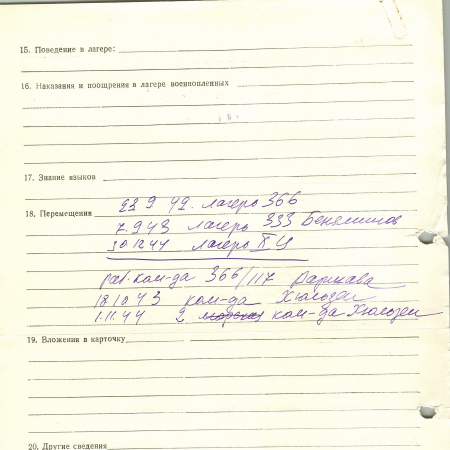 15. Поведение в лагере:
16. Наказания и поощрения в лагере военнопленных
17. Знание языков
23 9 42. лагерь 366
18. Перемещения
7.9 43 лагерь 333 Беньяминов
30 12 44 лагерь X Ц
раб. ком-да 366/117 Варшава
18 10 43 ком-да Хюлозен
1.11.44 2. ком-да Хюлозен
19. Вложения в карточку
20. Другие сведения